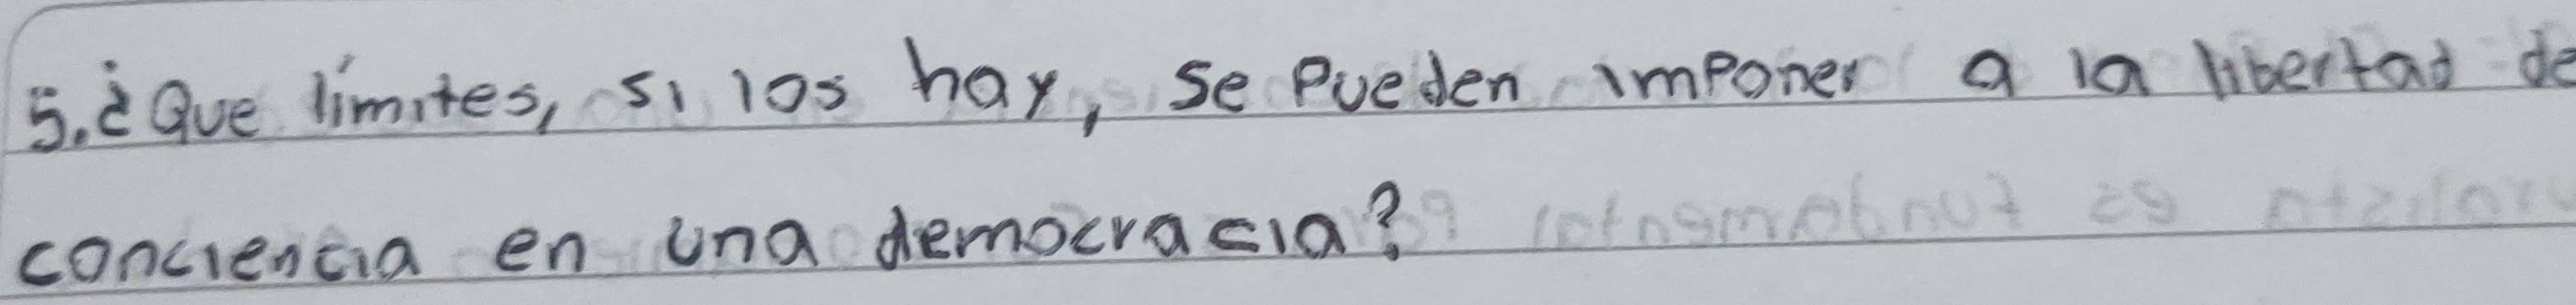 5. ¿Que límites, si los hay, se pueden imponer a la libertad de
conciencia en una democracia?